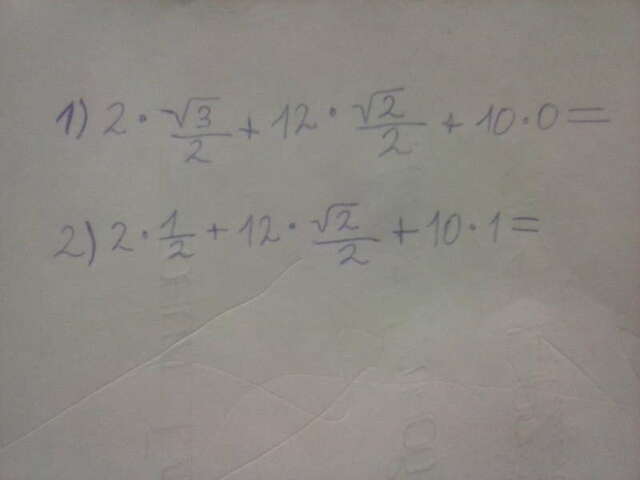 1) 2 · √3/2 + 12 · √2/2 + 10 · 0 =
2) 2 · 1/2 + 12 · √2/2 + 10 · 1 =